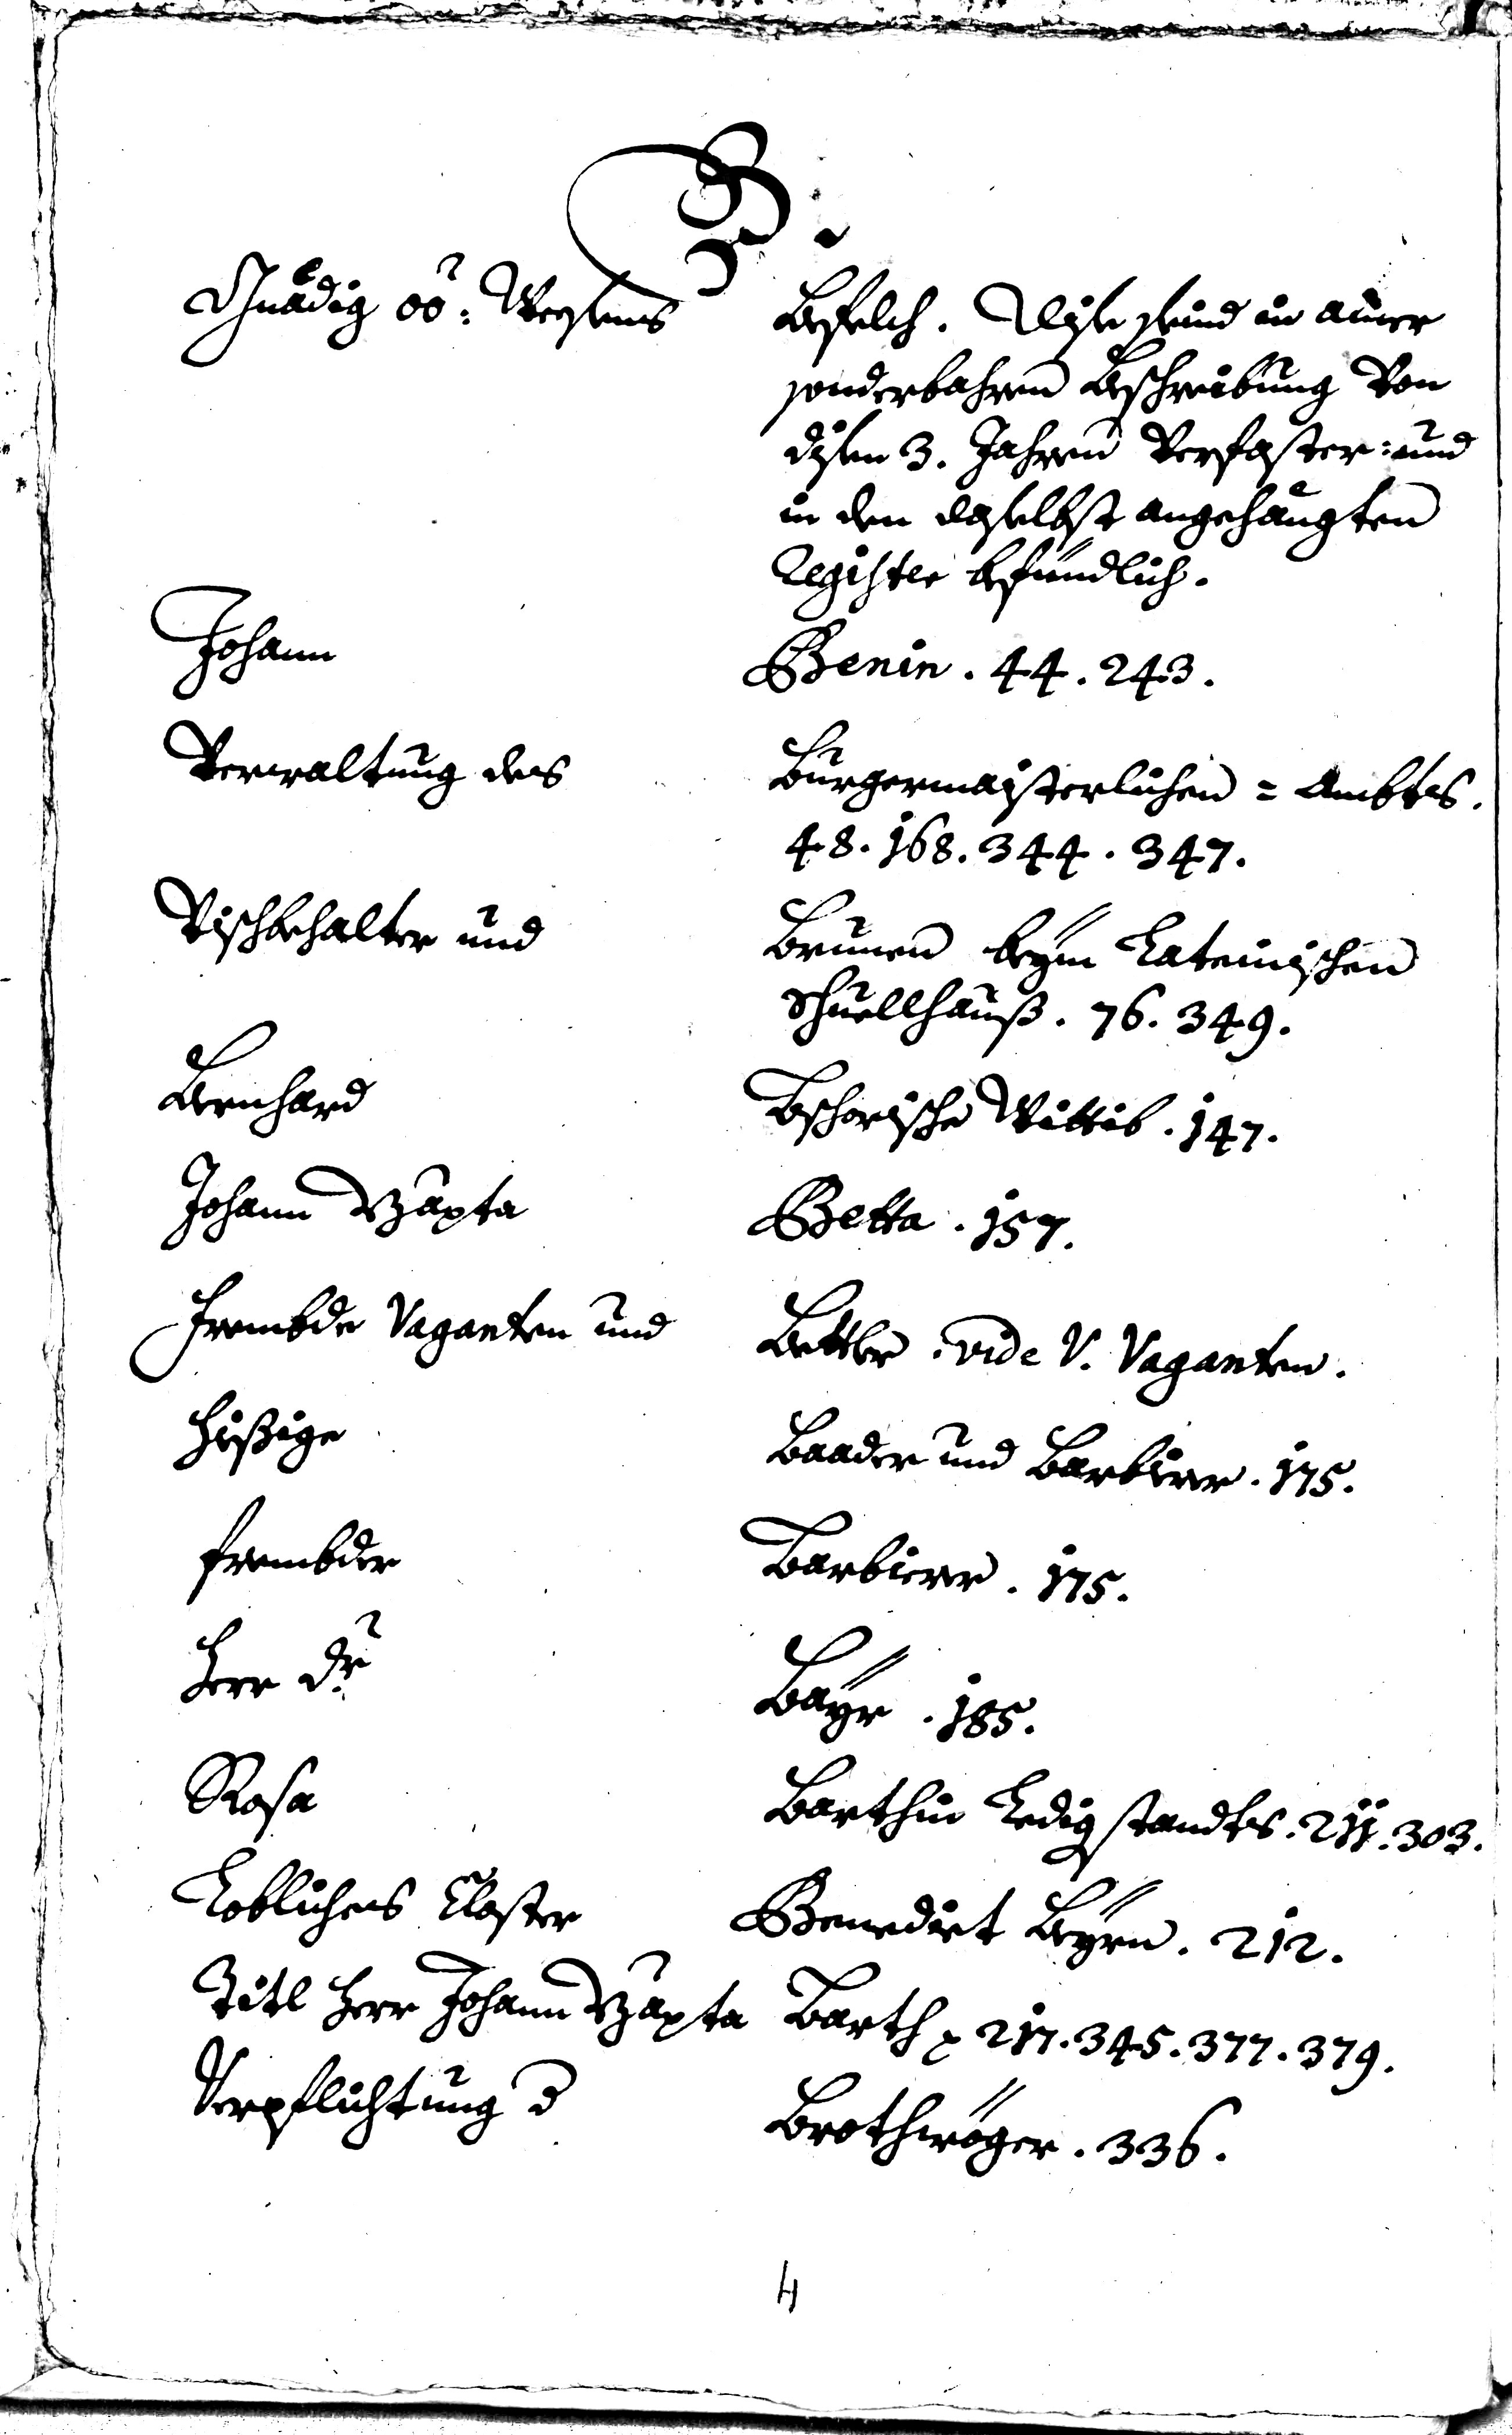 B.
Gnädig oö: Weesens Befelch. Dise seind in ainer
sonderbahren Beschreibung von
disen 3. Jahren verfaster: und
in den daselbst angehängten
Register befündlich.
Johann Benin. 44. 243.
Verwaltung des Burgermaisterlichen = Ambts.
48. 168. 344. 347.
Vischbehalter und Brunen beÿm Lateinischen
Schuellhauß. 76. 349.
Bernhard Bschorische Wittib. 147.
Johann Bapta Betta. 157.
Frembde Vaganten und Bettler. vide V. Vaganten.
Hießige Baader und Barbierer. 175.
frembder Barbierer. 175.
Herr Dr. Baÿr. 185.
Rosa Barthin Ledig standts. 211. 303.
Lobliches Closter Benedict Beÿrn. 212.
Titl Herr Johann Bapta Barth 217. 345. 377. 379.
Verpflichtung d Brothwöger. 336.
4